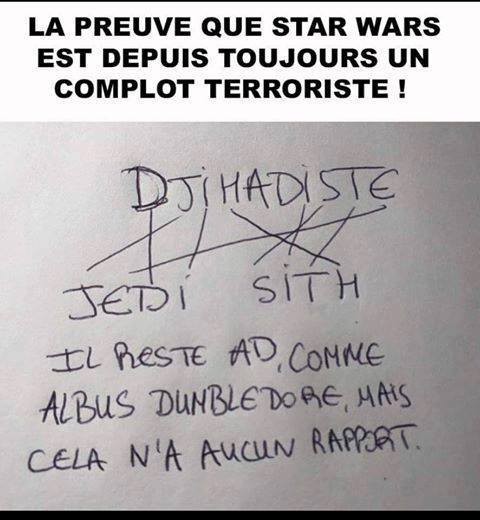 LA PREUVE QUE STAR WARS
EST DEPUIS TOUJOURS UN
COMPLOT TERRORISTE !
DJiHADiSTE
JEDi SiTH
IL RESTE AD, COMME
ALBUS DUNBLEDORE, MAIS
CELA N'A AUCUN RAPPORT.